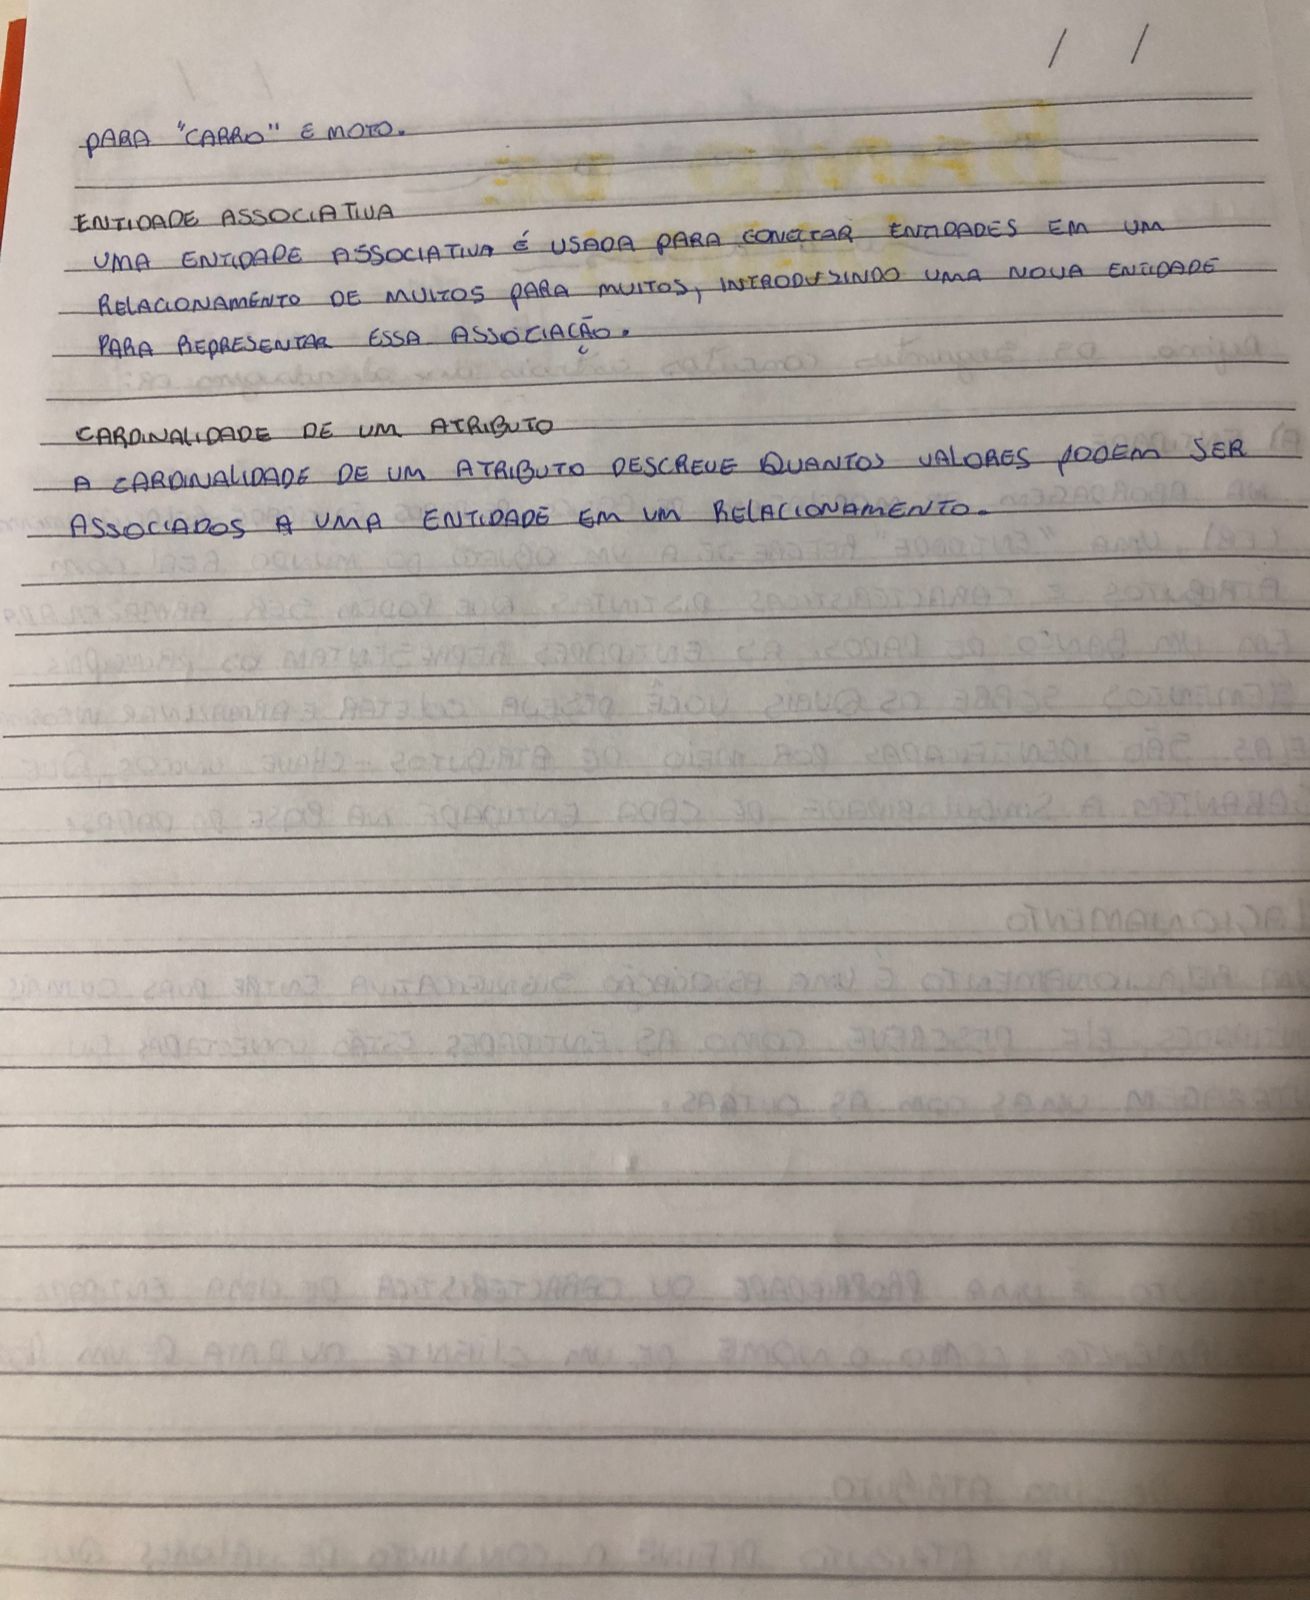 / /
PARA "CARRO" E MOTO.
ENTIDADE ASSOCIATIVA
UMA ENTIDADE ASSOCIATIVA É USADA PARA CONECTAR ENTIDADES EM UM
RELACIONAMENTO DE MUITOS PARA MUITOS, INTRODUZINDO UMA NOVA ENTIDADE
PARA REPRESENTAR ESSA ASSOCIAÇÃO.
CARDINALIDADE DE UM ATRIBUTO
A CARDINALIDADE DE UM ATRIBUTO DESCREVE QUANTOS VALORES PODEM SER
ASSOCIADOS A UMA ENTIDADE EM UM RELACIONAMENTO.